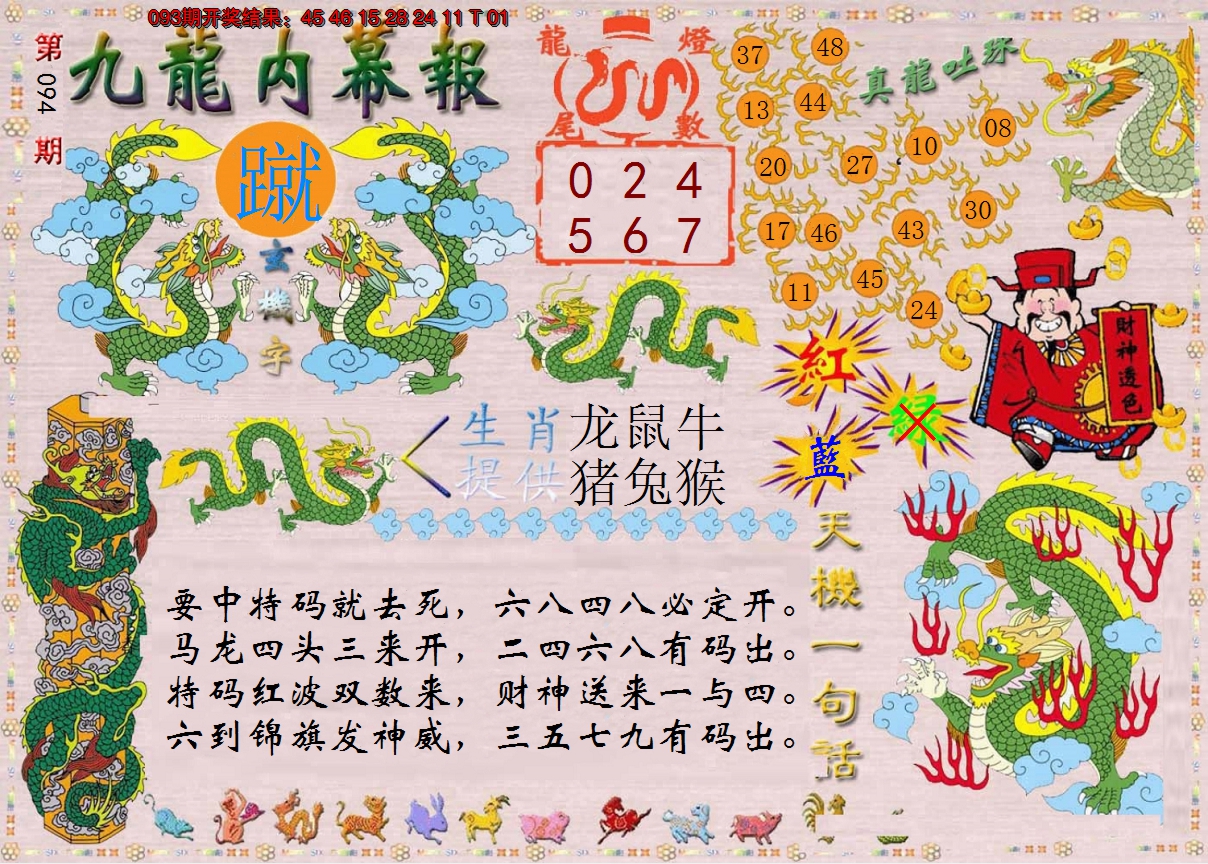 093期开奖结果：45 46 15 28 24 11 T 01
第094期
九龍内幕報
蹴
玄機字
龍燈
尾數
0 2 4
5 6 7
真龍吐珠
37 48
13 44
10 08
20 27
30
17 46 43
45
11 24
財神透色
紅
绿
藍
生肖提供
龙鼠牛
猪兔猴
要中特码就去死，六八四八必定开。
马龙四头三来开，二四六八有码出。
特码红波双数来，财神送来一与四。
六到锦旗发神威，三五七九有码出。
天機一句話